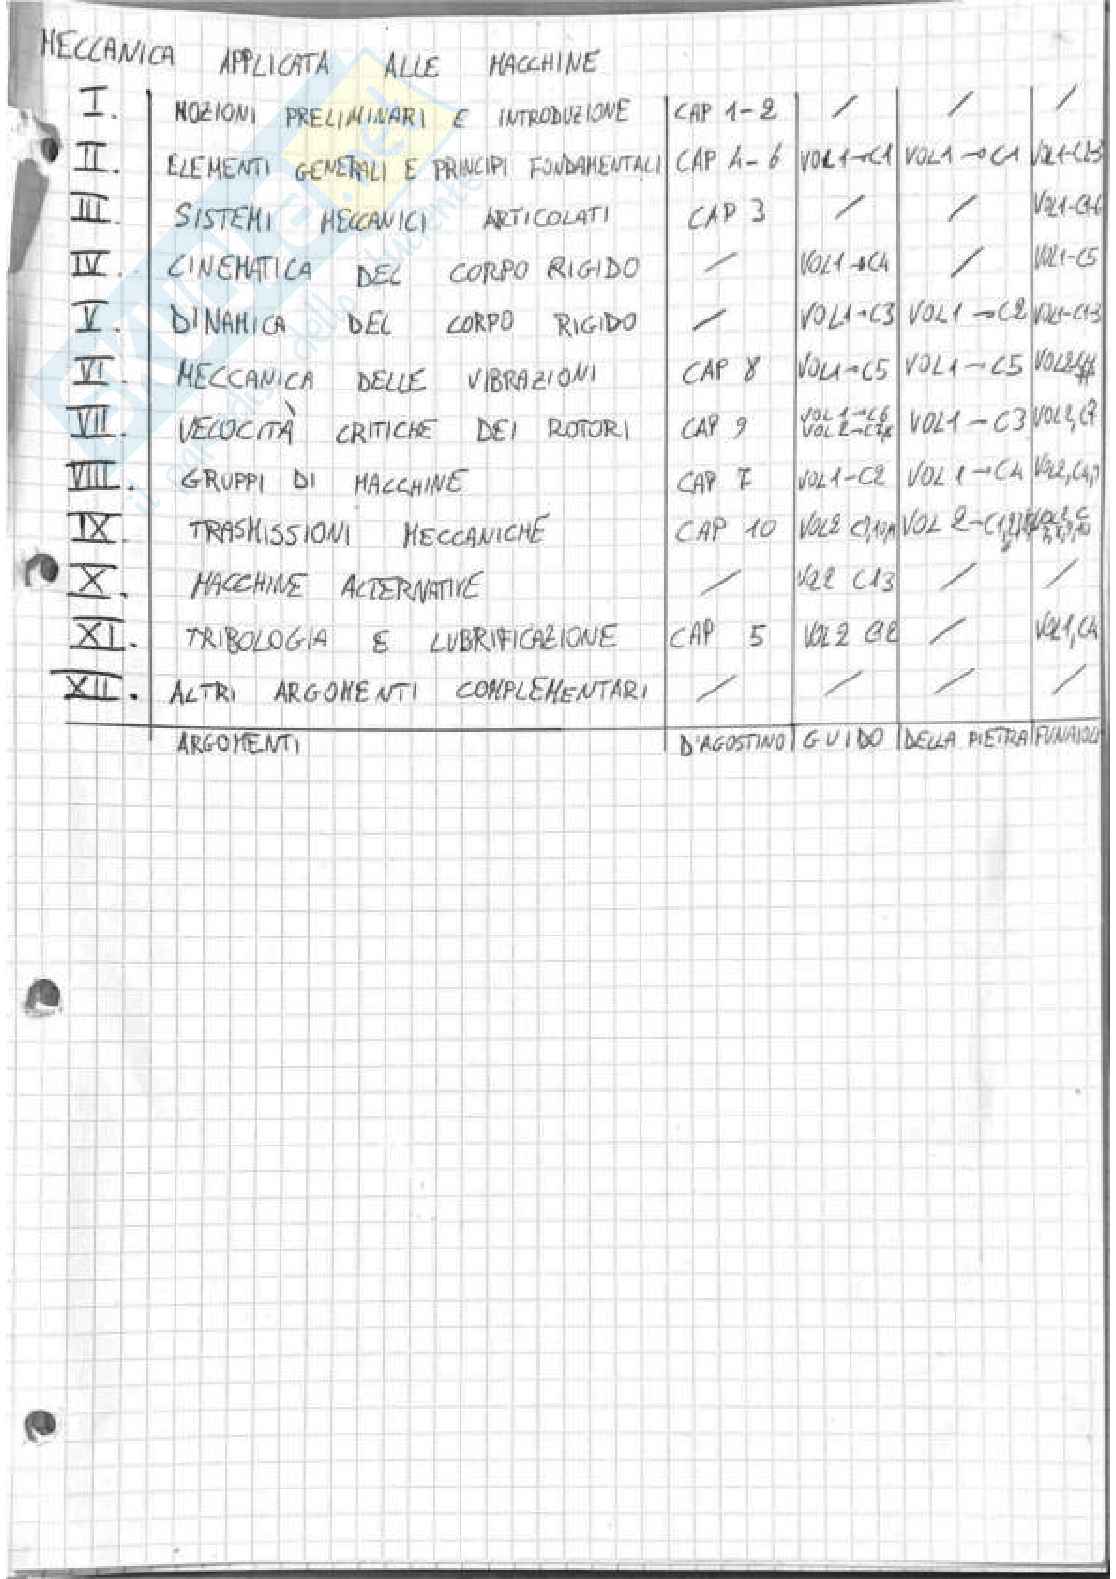 MECCANICA APPLICATA ALLE MACCHINE
I. NOZIONI PRELIMINARI E INTRODUZIONE CAP 1-2 / / /
II. ELEMENTI GENERALI E PRINCIPI FONDAMENTALI CAP 4-6 VOL1→C1 VOL1→C1
III. SISTEMI MECCANICI ARTICOLATI CAP 3 / /
IV. CINEMATICA DEL CORPO RIGIDO / VOL1→C4 / VOL1-C5
V. DINAMICA DEL CORPO RIGIDO / VOL1→C3 VOL1→C2 VOL1-C1-3
VI. MECCANICA DELLE VIBRAZIONI CAP 8 VOL1→C5 VOL1→C5
VII. VELOCITÀ CRITICHE DEI ROTORI CAP 9 VOL1→C6 VOL1-C3 VOL2,C7
VIII. GRUPPI DI MACCHINE CAP 7 VOL1-C2 VOL1→C4
IX. TRASMISSIONI MECCANICHE CAP 10 VOL2 VOL 2
X. MACCHINE ALTERNATIVE / VOL2 C13 / /
XI. TRIBOLOGIA E LUBRIFICAZIONE CAP 5 VOL2 / VOL1,C4
XII. ALTRI ARGOMENTI COMPLEMENTARI / / / /
ARGOMENTI D'AGOSTINO GUIDO DELLA PIETRA FUNAIOLI